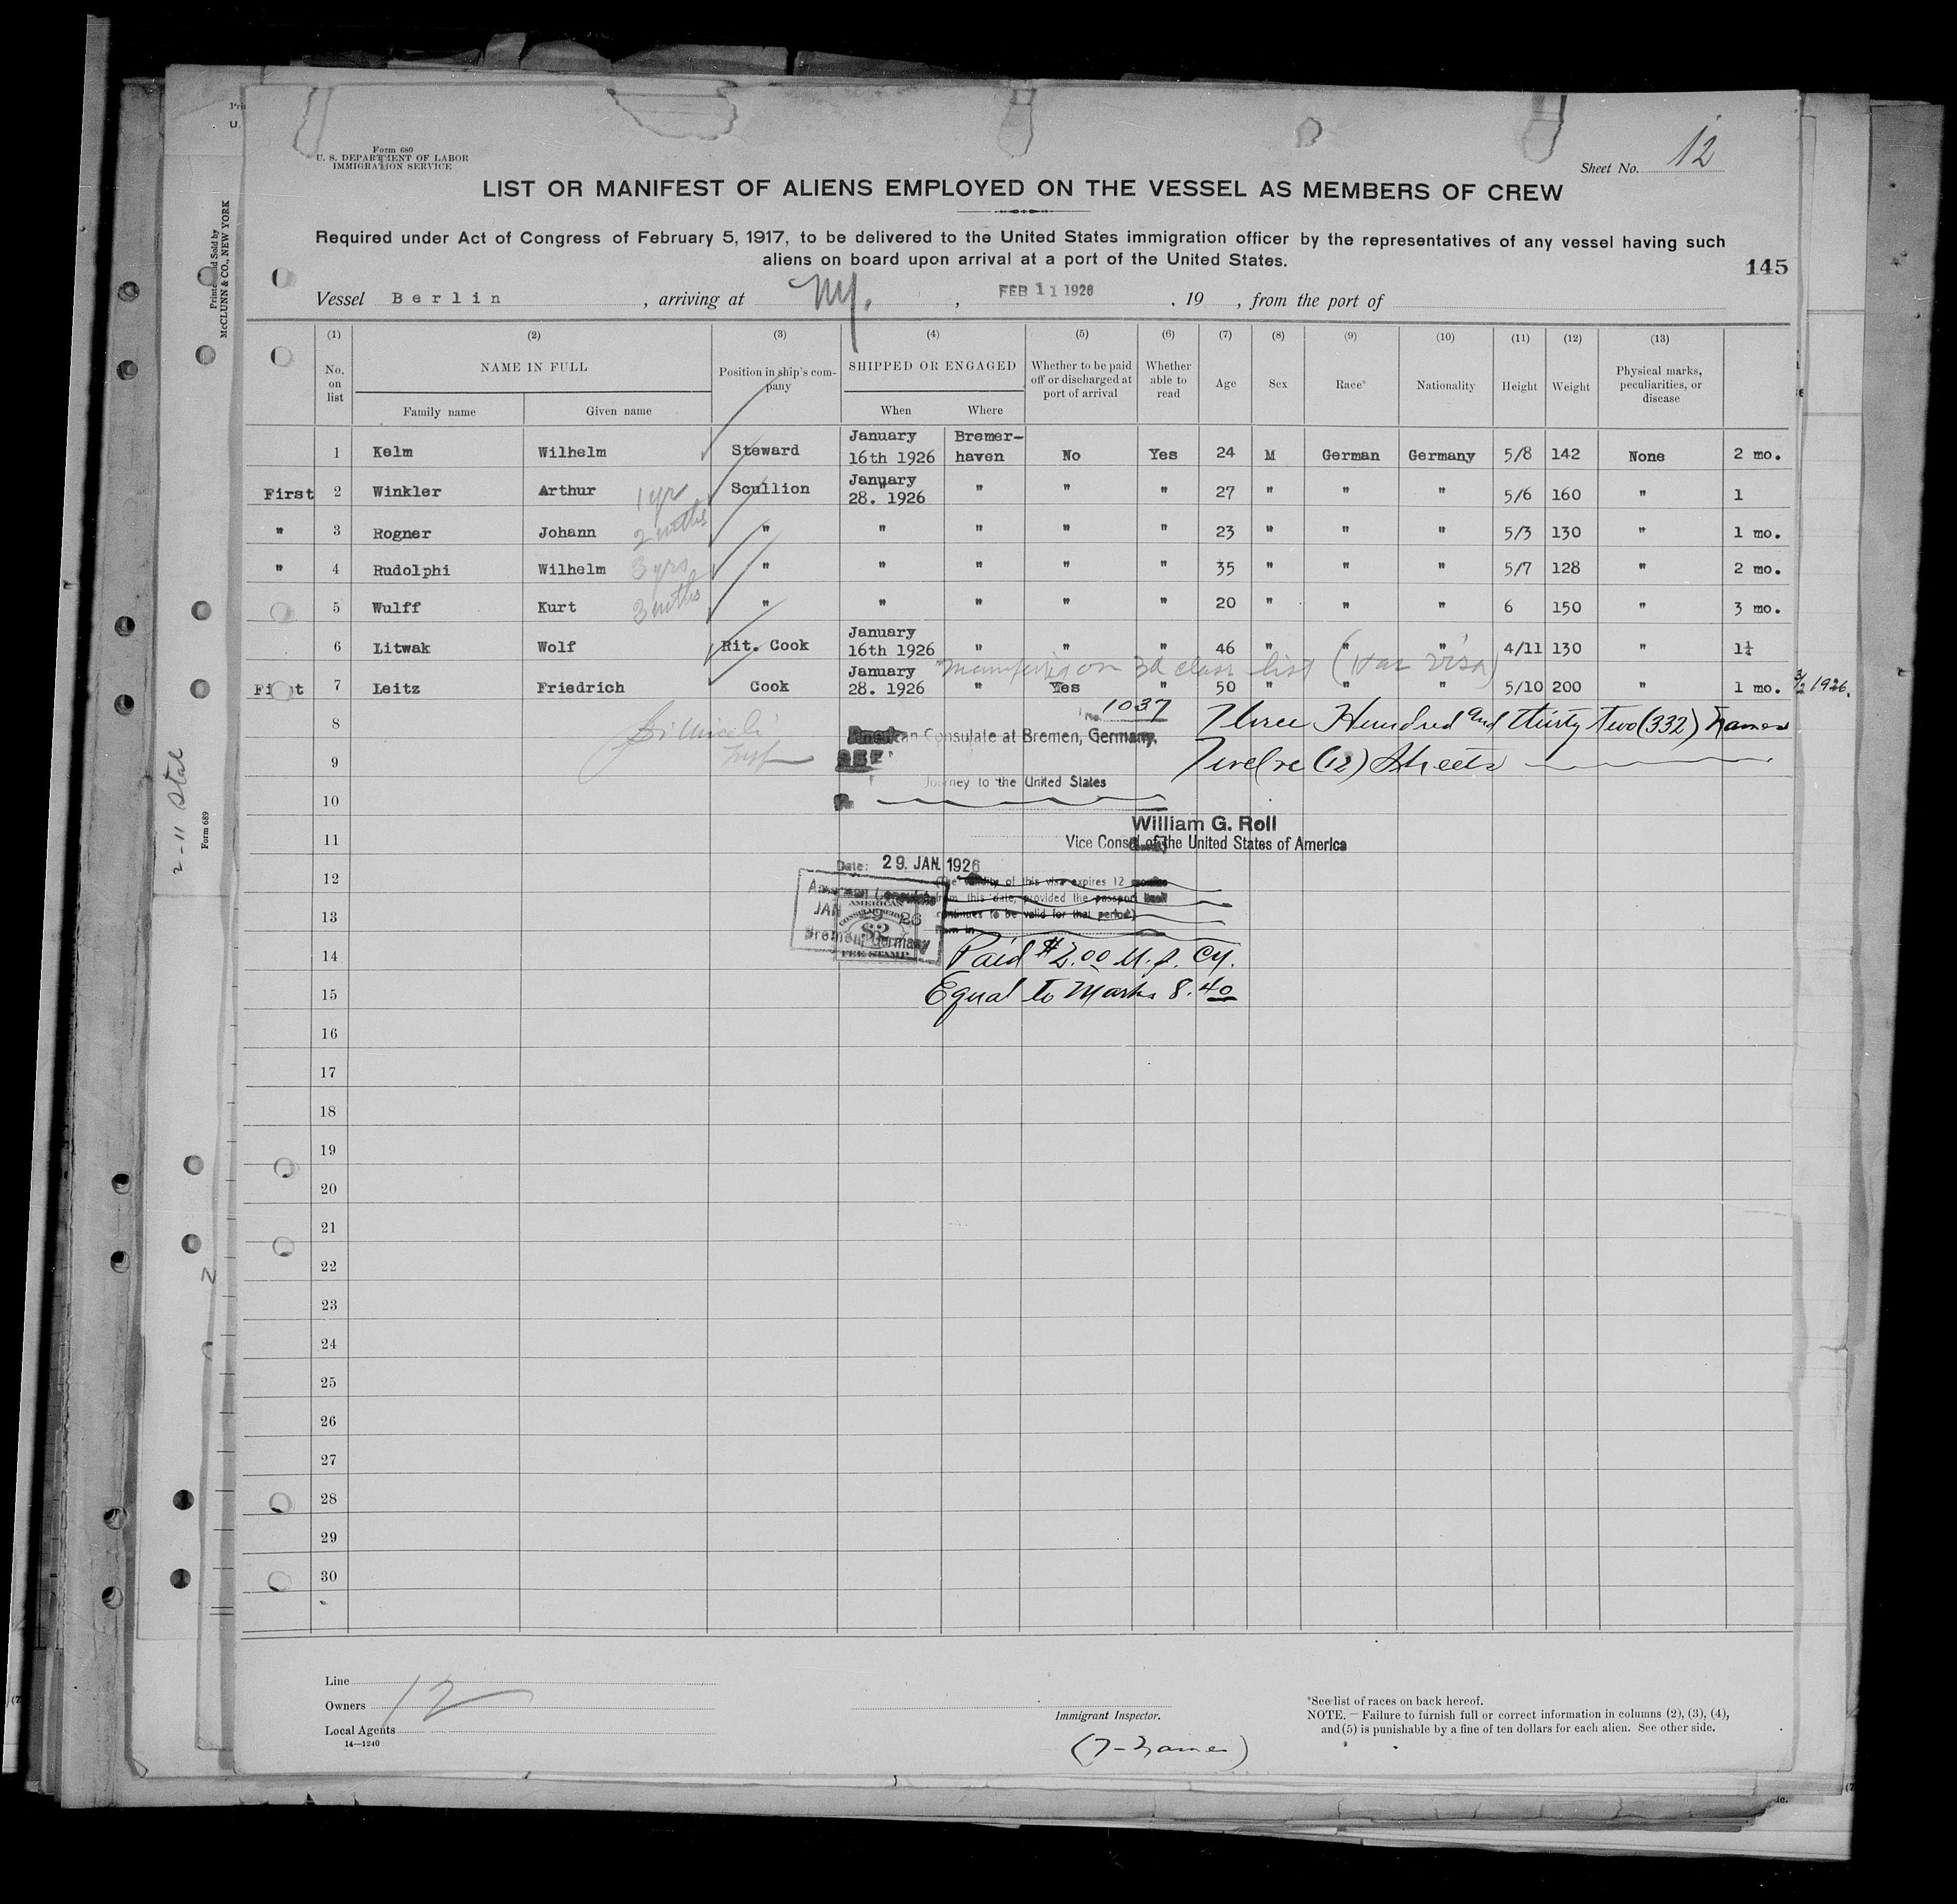 Form 680
U. S. DEPARTMENT OF LABOR
IMMIGRATION SERVICE
Sheet No. 12
LIST OR MANIFEST OF ALIENS EMPLOYED ON THE VESSEL AS MEMBERS OF CREW
Required under Act of Congress of February 5, 1917, to be delivered to the United States immigration officer by the representatives of any vessel having such
aliens on board upon arrival at a port of the United States.
145
Vessel Berlin , arriving at NY. , FEB 11 1926 , 19 , from the port of
(1) (2) (3) (4) (5) (6) (7) (8) (9) (10) (11) (12) (13)
No. on list NAME IN FULL Family name Given name Position in ship's company SHIPPED OR ENGAGED When Where Whether to be paid off or discharged at port of arrival Whether able to read Age Sex Race* Nationality Height Weight Physical marks, peculiarities, or disease
1 Kelm Wilhelm Steward January 16th 1926 Bremerhaven No Yes 24 M German Germany 5/8 142 None 2 mo.
First 2 Winkler Arthur 1 yr Scullion January 28. 1926 " " " 27 " " " 5/6 160 " 1
" 3 Rogner Johann 2 mths " " " " " 23 " " " 5/3 130 " 1 mo.
" 4 Rudolphi Wilhelm 3 yrs " " " " " 35 " " " 5/7 128 " 2 mo.
5 Wulff Kurt 3 mths " " " " " 20 " " " 6 150 " 3 mo.
6 Litwak Wolf Rit. Cook January 16th 1926 " " " 46 " " " 4/11 130 " 1¼
on 3d class list (Has visa)
First 7 Leitz Friedrich Cook January 28. 1926 " Yes " 50 " " " 5/10 200 " 1 mo. 3/2 1926.
8 No. 1037 Three Hundred and thirty two (332) names
American Consulate at Bremen, Germany.
9 SEE Twelve (12) Sheets
Journey to the United States
10
William G. Roll
11 Vice Consul of the United States of America
Date: 29. JAN. 1926
12 (The validity of this visa expires 12 months
from this date, provided the passport itself
13 continues to be valid for that period)
American Consulate
JAN 29 26
Bremen, Germany
AMERICAN
CONSULAR
$2
FEE STAMP
14 Paid $2.00 U.S. Cy.
15 Equal to Marks 8.40
16
17
18
19
20
21
22
23
24
25
26
27
28
29
30
Line
Owners 12
Local Agents
14—1240
Immigrant Inspector.
(7-names)
*See list of races on back hereof.
NOTE.—Failure to furnish full or correct information in columns (2), (3), (4),
and (5) is punishable by a fine of ten dollars for each alien. See other side.
Printed and Sold by
McCLUNN & CO., NEW YORK
2-11 Stal
Form 689